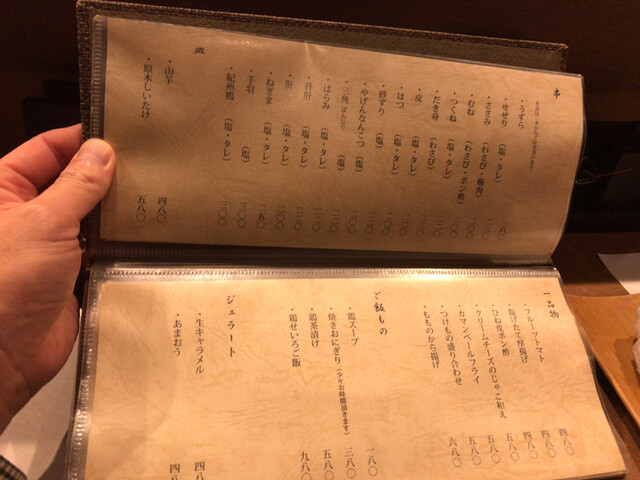 串
・うずら
・せせり (塩・タレ) 一八〇
・ささみ (わさび・梅肉)
・むね (わさび・ポン酢)
・つくね (塩・タレ)
・だき身 (わさび)
・皮 (塩・タレ)
・はつ (塩・タレ)
・砂ずり (塩)
・やげんなんこつ (塩)
・三角 ぼんじり (塩)
・はらみ (塩・タレ)
・背肝 (塩・タレ)
・肝 (塩・タレ) 二〇〇
・ねぎま (塩・タレ) 二五〇
・手羽 (塩) 三〇〇
・紀州鴨 (塩・タレ) 三〇〇
皿
・山芋 四八〇
・原木しいたけ 五八〇
一品物
・フルーツトマト 四八〇
・揚げたて厚揚げ 四八〇
・ひね皮ポン酢 四八〇
・クリームチーズのじゃこ和え 五八〇
・カマンベールフライ 五八〇
・つけもの盛り合わせ 五八〇
・もものから揚げ 六八〇
ご飯もの
・鶏スープ 一八〇
・焼きおにぎり (少々お時間頂きます) 三八〇
・鶏茶漬け 五八〇
・鶏せいろご飯 九八〇
ジェラート
・生キャラメル 四八
・あまおう 四八